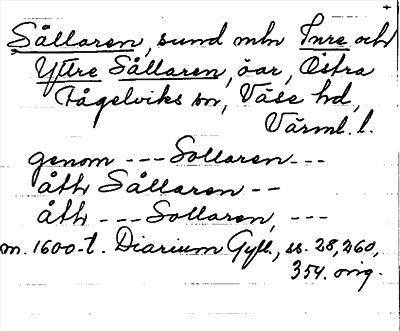 Sållaren, sund mln Inre och
Yttre Sållaren, öar, Östra
Fågelviks sn, Väse hd,
Värml. l.
genom --- Sollaren ---
åth Sållaren --
åth --- Sollaren, ---
m. 1600-t. Diarium Gyll., ss. 28, 260,
354. orig.